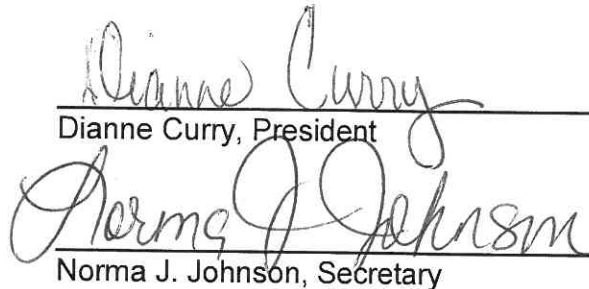 Dianne Curry
Dianne Curry, President
Norma J Johnson
Norma J. Johnson, Secretary